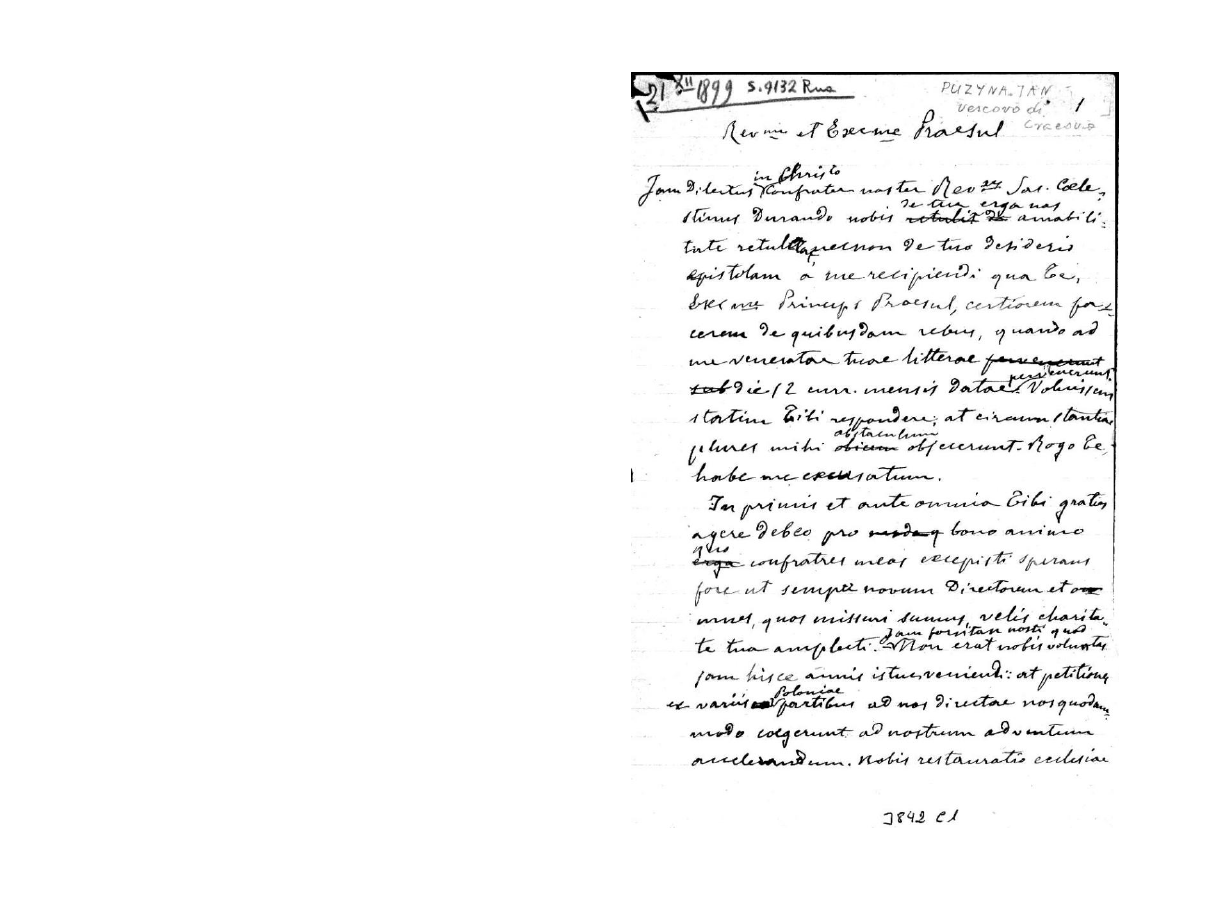 21 XII 1899 S.9132 Rua
PUZYNA JAN
vescovo di 1
Cracovia
Revmi et Excme Praesul
in Christo
Jam Dilectus Confrater noster Rev Sac. Coele=
de tua erga nos
stinus Durando nobis retulit de amabili=
tate retulit necnon de tuo desiderio
epistolam a me recipiendi qua Te,
Excme Princeps Praesul, certiorem fa=
cerem de quibusdam rebus, quando ad
me veneratae tuae litterae pervenerunt
pervenerunt.
sub die 12 curr. mensis datae. Voluissem
statim Tibi respondere; at circumstantiae
obstaculum
plures mihi obicem objecerunt. Rogo Te,
habe me excusatum.
In primis et ante omnia Tibi gratias
agere debeo pro bono animo
quo
erga confratres meos excepisti sperans
fore ut semper novum Directorem et
omnes, quos missuri sumus, velis charita=
te tua amplecti. Jam forsitan nosti quod
Non erat nobis voluntas
jam hisce annis istuc veniendi: at petitiones
Poloniae
ex variis partibus ad nos directae nos quodam=
modo coegerunt ad nostrum adventum
accelerandum. Nobis restauratio ecclesiae
3842 C1